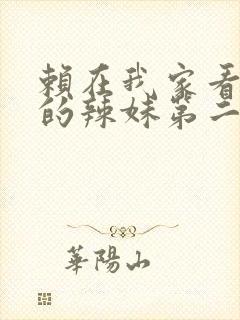 賴在我家看
的辣妹第二
華陽山